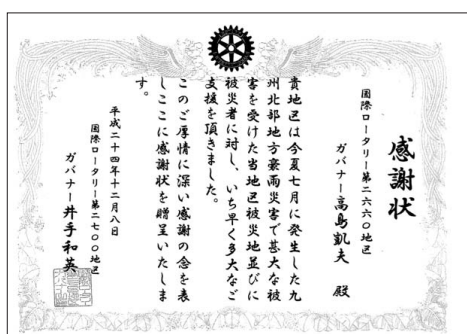 感謝状
国際ロータリー第二六六〇地区
ガバナー高島凱夫 殿
貴地区は今夏七月に発生した九
州北部地方豪雨災害で甚大な被
害を受けた当地区被災地並びに
被災者に対し、いち早く多大なご
支援を頂きました。
このご厚情に深い感謝の念を表
しここに感謝状を贈呈いたしま
す。
平成二十四年十二月八日
国際ロータリー第二七〇〇地区
ガバナー井手和英